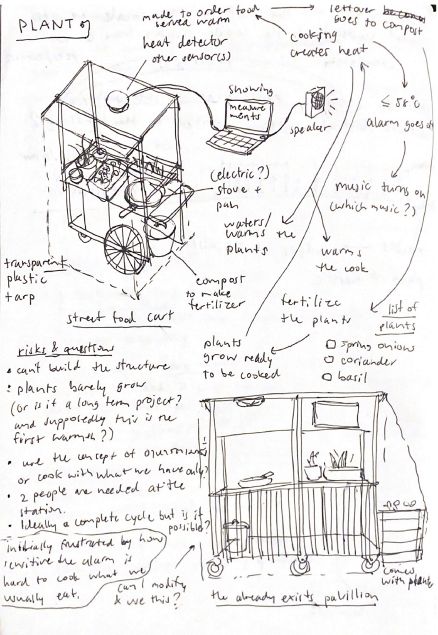 PLANT
made to order food
served warm
leftover
goes to compost
heat detector
other sensor(s)
cooking
creates heat
showing
measure
ments
speaker
≤ 58°C
alarm goes off
music turns on
(which music?)
(electric?)
stove +
pan
waters/
warms the
plants
warms
the cook
transparent
plastic
tarp
compost
to make
fertilizer
street food cart
fertilize
the plants
list of
plants
spring onions
coriander
basil
plants
grow ready
to be cooked
risks & questions
• can't build the structure
• plants barely grow
(or is it a long term project?
and supposedly this is the
first warmish?)
• use the concept of
or cook with what we have only?
• 2 people are needed at the
station.
• Ideally a complete cycle but is it
possible?
initially frustrated by how
sensitive the alarm is
hard to cook what we
usually eat.
can I modify
& use this?
the already exists pavillion
comes
with plants